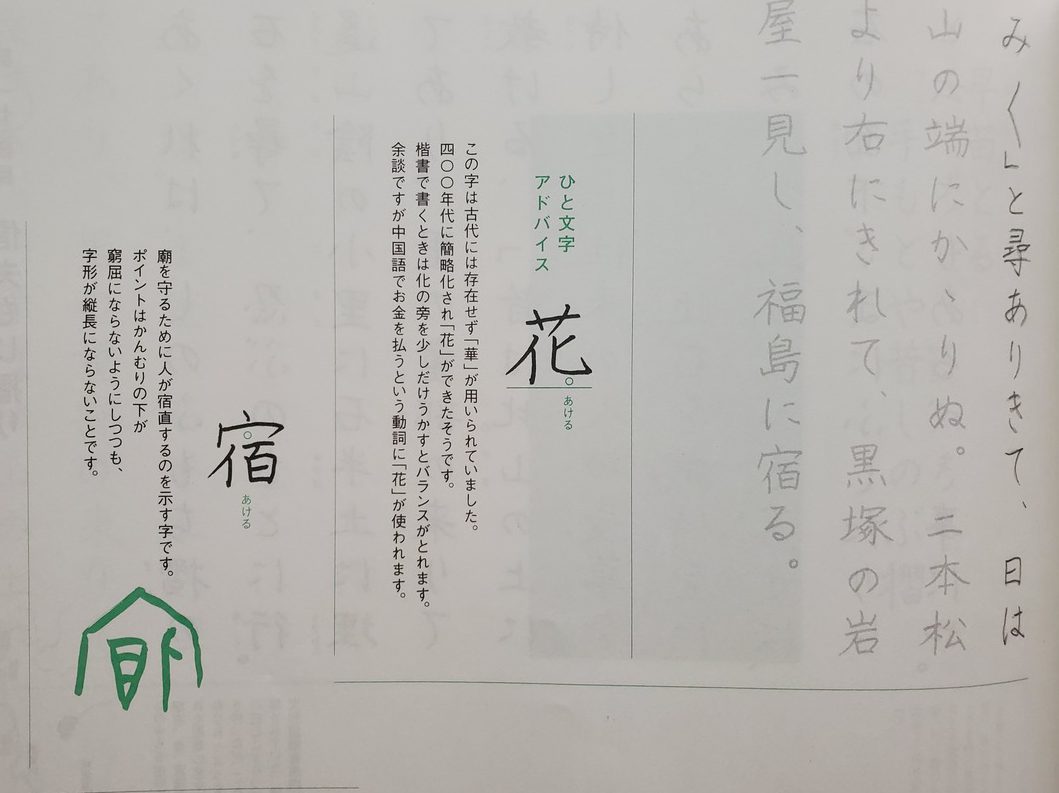 み〱」と尋ありきて、日は
山の端にかゝりぬ。二本松
より右にきれて、黒塚の岩
屋一見し、福島に宿る。
ひと文字
アドバイス
花
あける
この字は古代には存在せず「華」が用いられていました。
四〇〇年代に簡略化され「花」ができたそうです。
楷書で書くときは化の旁を少しだけうかすとバランスがとれます。
余談ですが中国語でお金を払うという動詞に「花」が使われます。
宿
あける
廟を守るために人が宿直するのを示す字です。
ポイントはかんむりの下が
窮屈にならないようにしつつも、
字形が縦長にならないことです。